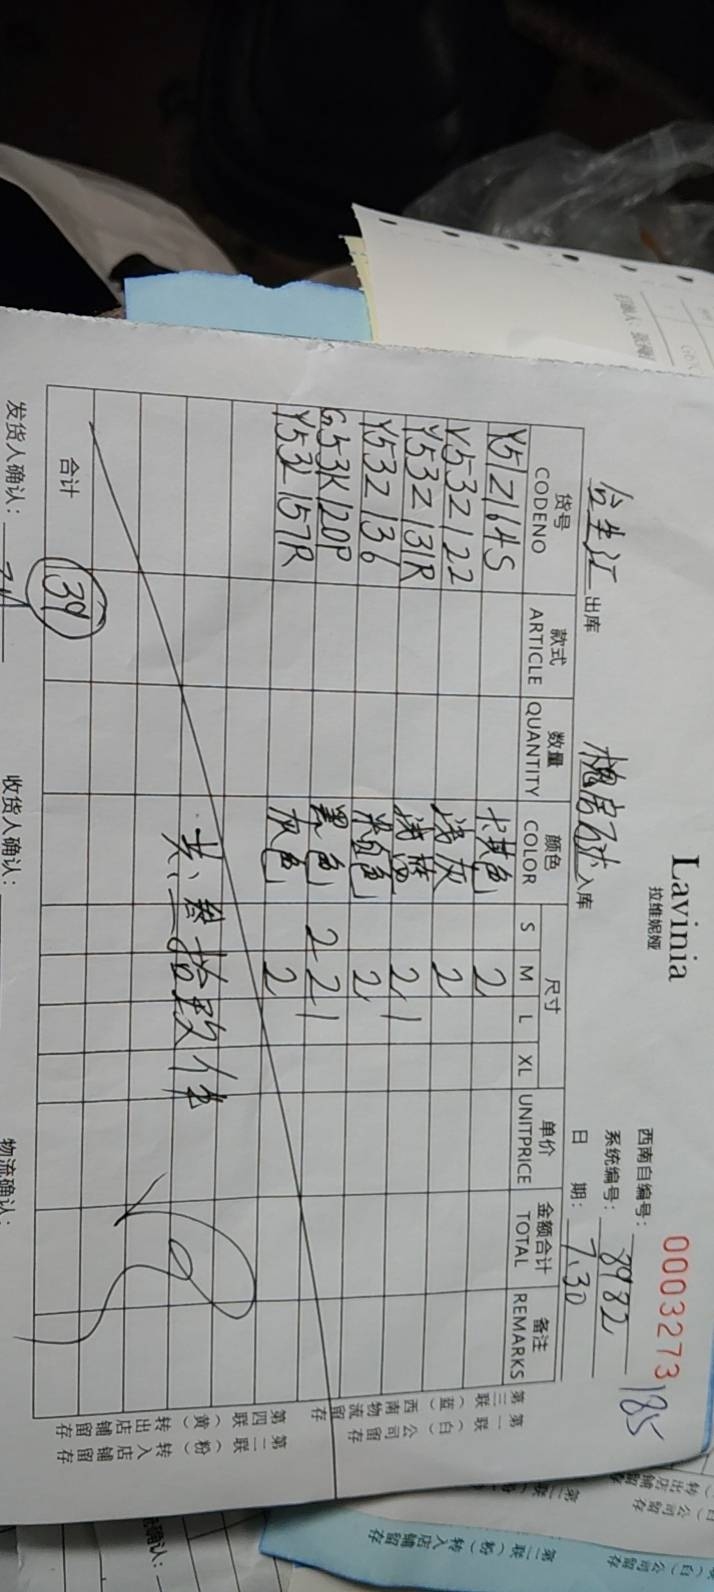 Lavinia
拉维妮娅
西南自编号: 0003273
185
系统编号: 8982
出库 入库 日 期: 7.30
货号 款式 数量 颜色 尺寸 单价 金额合计 备注
CODENO ARTICLE QUANTITY COLOR S M L XL UNITPRICE TOTAL REMARKS
Y5Z164S 卡其色 2
Y53Z122 浅灰 2
Y53Z131R 浅 2 1
Y53Z136 米白色 2
G53K120P 黑色 2 2 1
Y53L157R 灰色 2
共: 叁拾玖件
合计 39
发货人确认: 收货人确认: 物流确认:
第一联(白)公司留存
第二联(粉)转入店铺留存
第三联(蓝)西南物流留存
第四联(黄)转出店铺留存